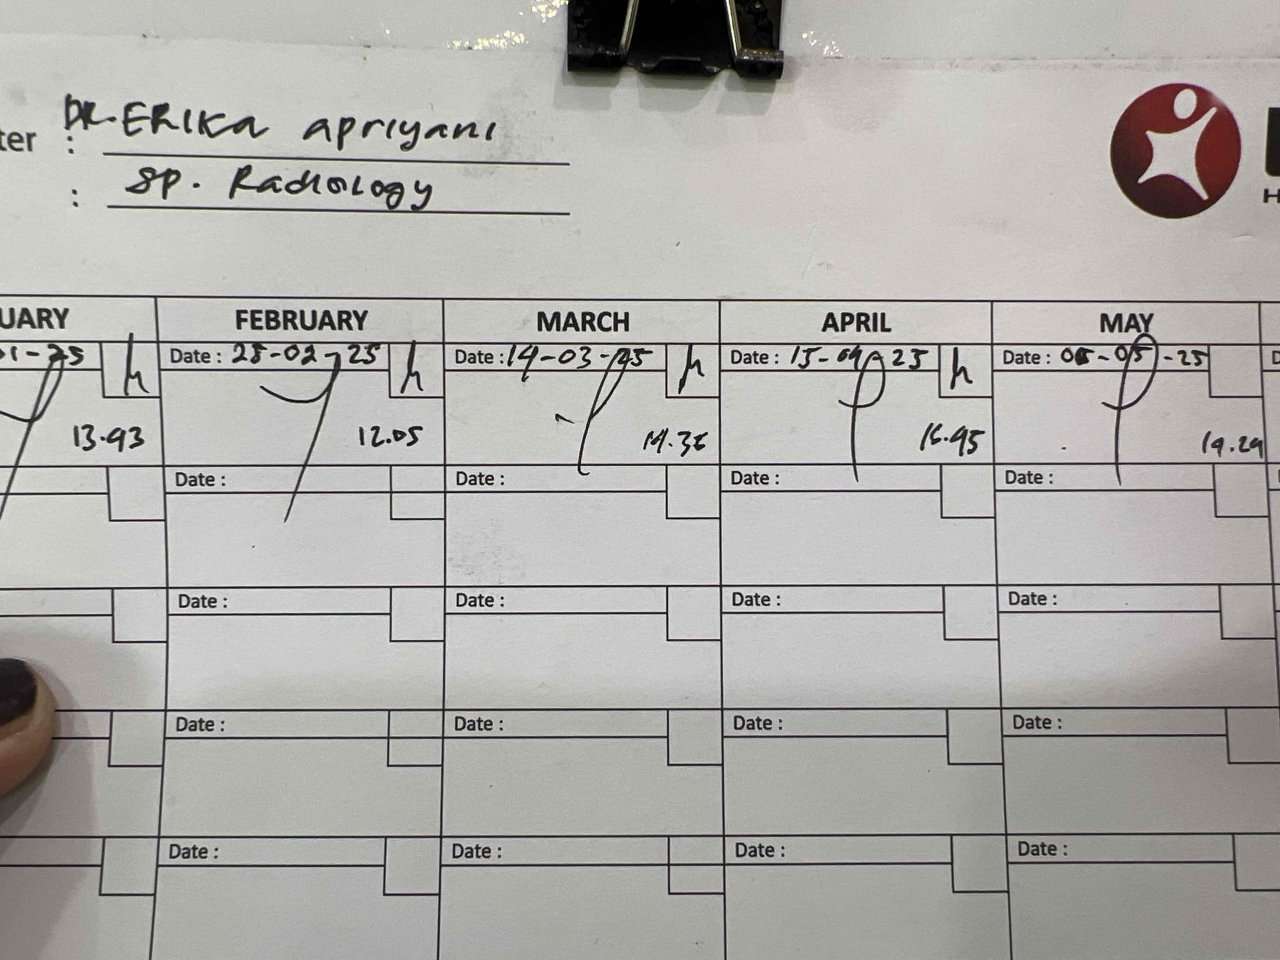 ter : DR. ERIKA apriyani
: SP. Radiology
H
UARY FEBRUARY MARCH APRIL MAY
1-25 Date : 28-02-25 Date : 14-03-25 Date : 15-04-25 Date : 05-05-25 D
13.43 12.05 14.36 16.45 14.29
Date : Date : Date : Date : D
Date : Date : Date : Date :
Date : Date : Date : Date :
Date : Date : Date : Date :